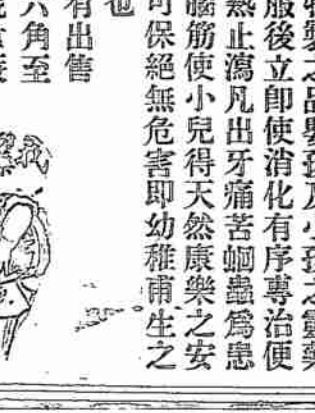 製之品嬰孩及小孩之靈藥
服後立卽使消化有序專治便
熱止瀉凡出牙痛苦蛔蟲爲患
腦筋使小兒得天然康樂之安
可保絕無危害即幼稚甫生之
也
有出售
六角至